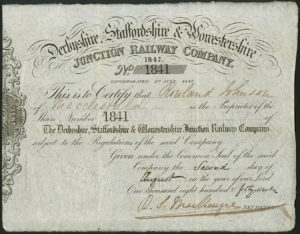 Derbyshire Staffordshire & Worcestershire
JUNCTION RAILWAY COMPANY.
1847.
No. 1841
INCORPORATED 2ND JULY 1847
This is to Certify that Rowland Johnson
of Macclesfield is the Proprietor of the
Share Number 1841 of
The Derbyshire, Staffordshire & Worcestershire Junction Railway Company
subject to the Regulations of the said Company.
Given under the Common Seal of the said
Company the Second day of
August in the year of our Lord
One thousand eight hundred & forty seven